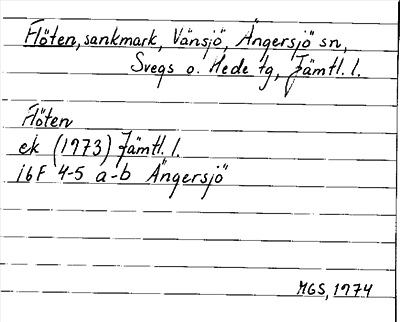 Flöten, sankmark, Vänsjö, Ängersjö sn,
Svegs o. Hede tg, Jämtl. l.
Flöten
ek (1973) Jämtl. l.
16F 4-5 a-b Ängersjö
MGS, 1974